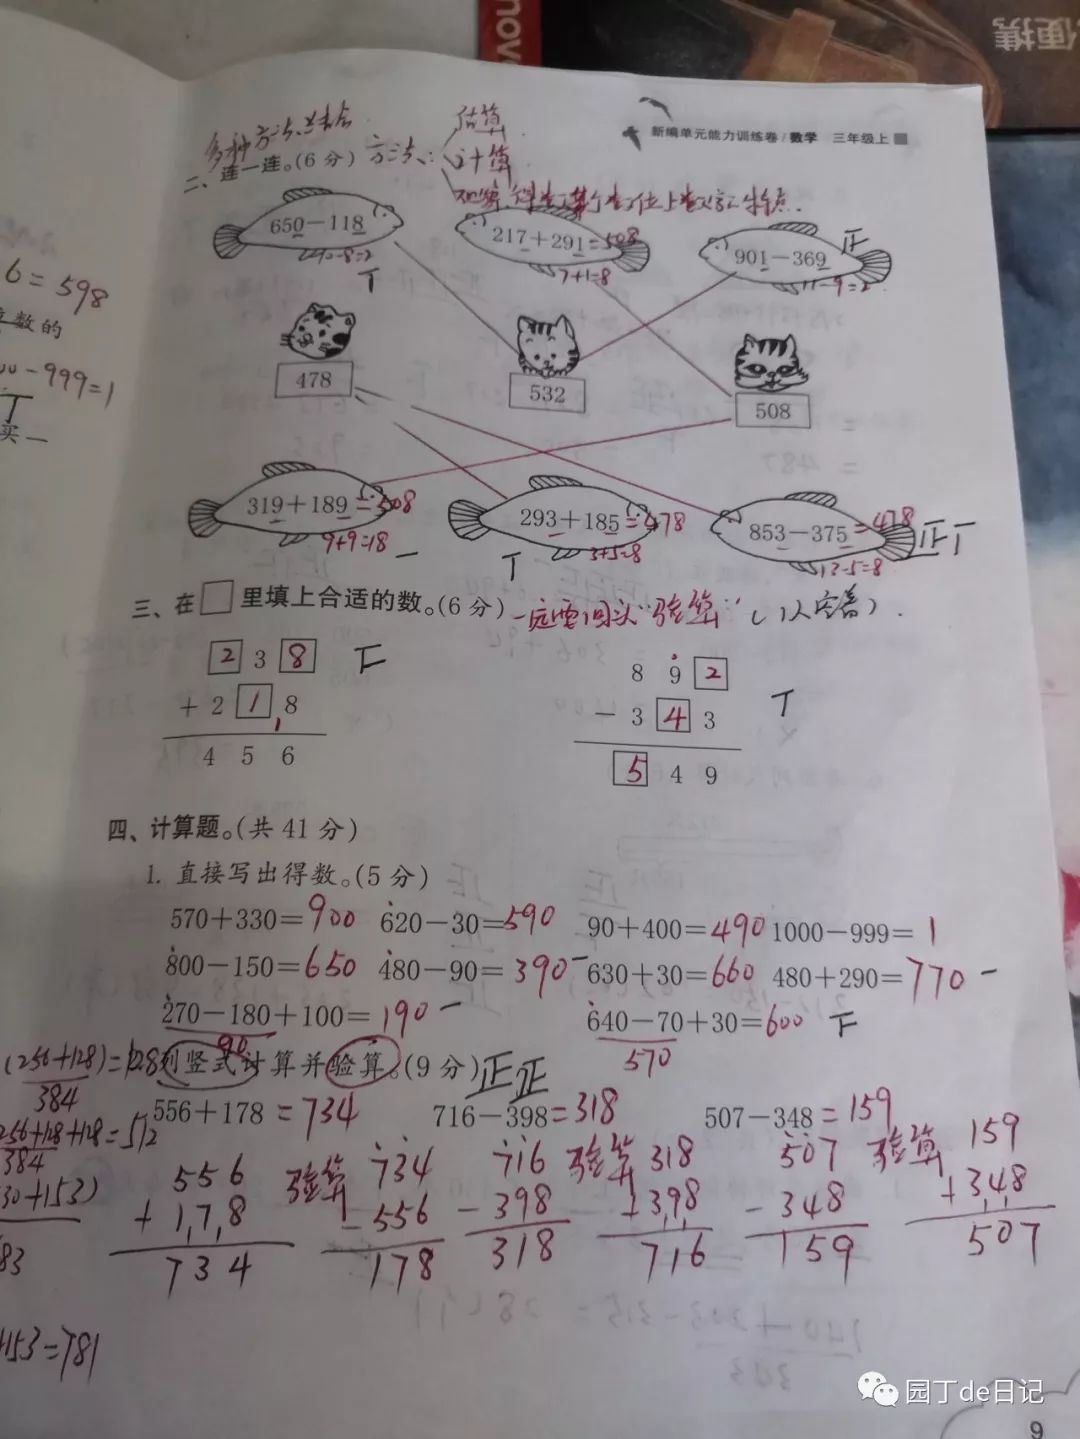 novo
便携
新编单元能力训练卷/数学 三年级上
多种方法
方法:
估算
计算
二、连一连。(6分)
650-118 217+291=508 901-369
10-8=2 7+1=8 11-9=2
正
478 532 508
319+189=508 293+185=478 853-375=478
9+9=18 3+5=8 13-5=8
三、在□里填上合适的数。(6分) 一定要回头"验算"
2 3 8 8 9 2
+ 2 1 8 - 3 4 3
4 5 6 5 4 9
四、计算题。(共41分)
1. 直接写出得数。(5分)
570+330=900 620-30=590 90+400=490 1000-999=1
800-150=650 480-90=390 630+30=660 480+290=770
270-180+100=190 640-70+30=600
90 570
列竖式计算并验算。(9分) 正正
556+178=734 716-398=318 507-348=159
556 验算 734 716 验算 318 507 验算 159
+178 -556 -398 +398 -348 +348
734 178 318 716 159 507
6=598
数的
-999=1
买一
(256+128)=128
384
256+128+128=512
384
30+153)
83
+153=781
园丁de日记
9